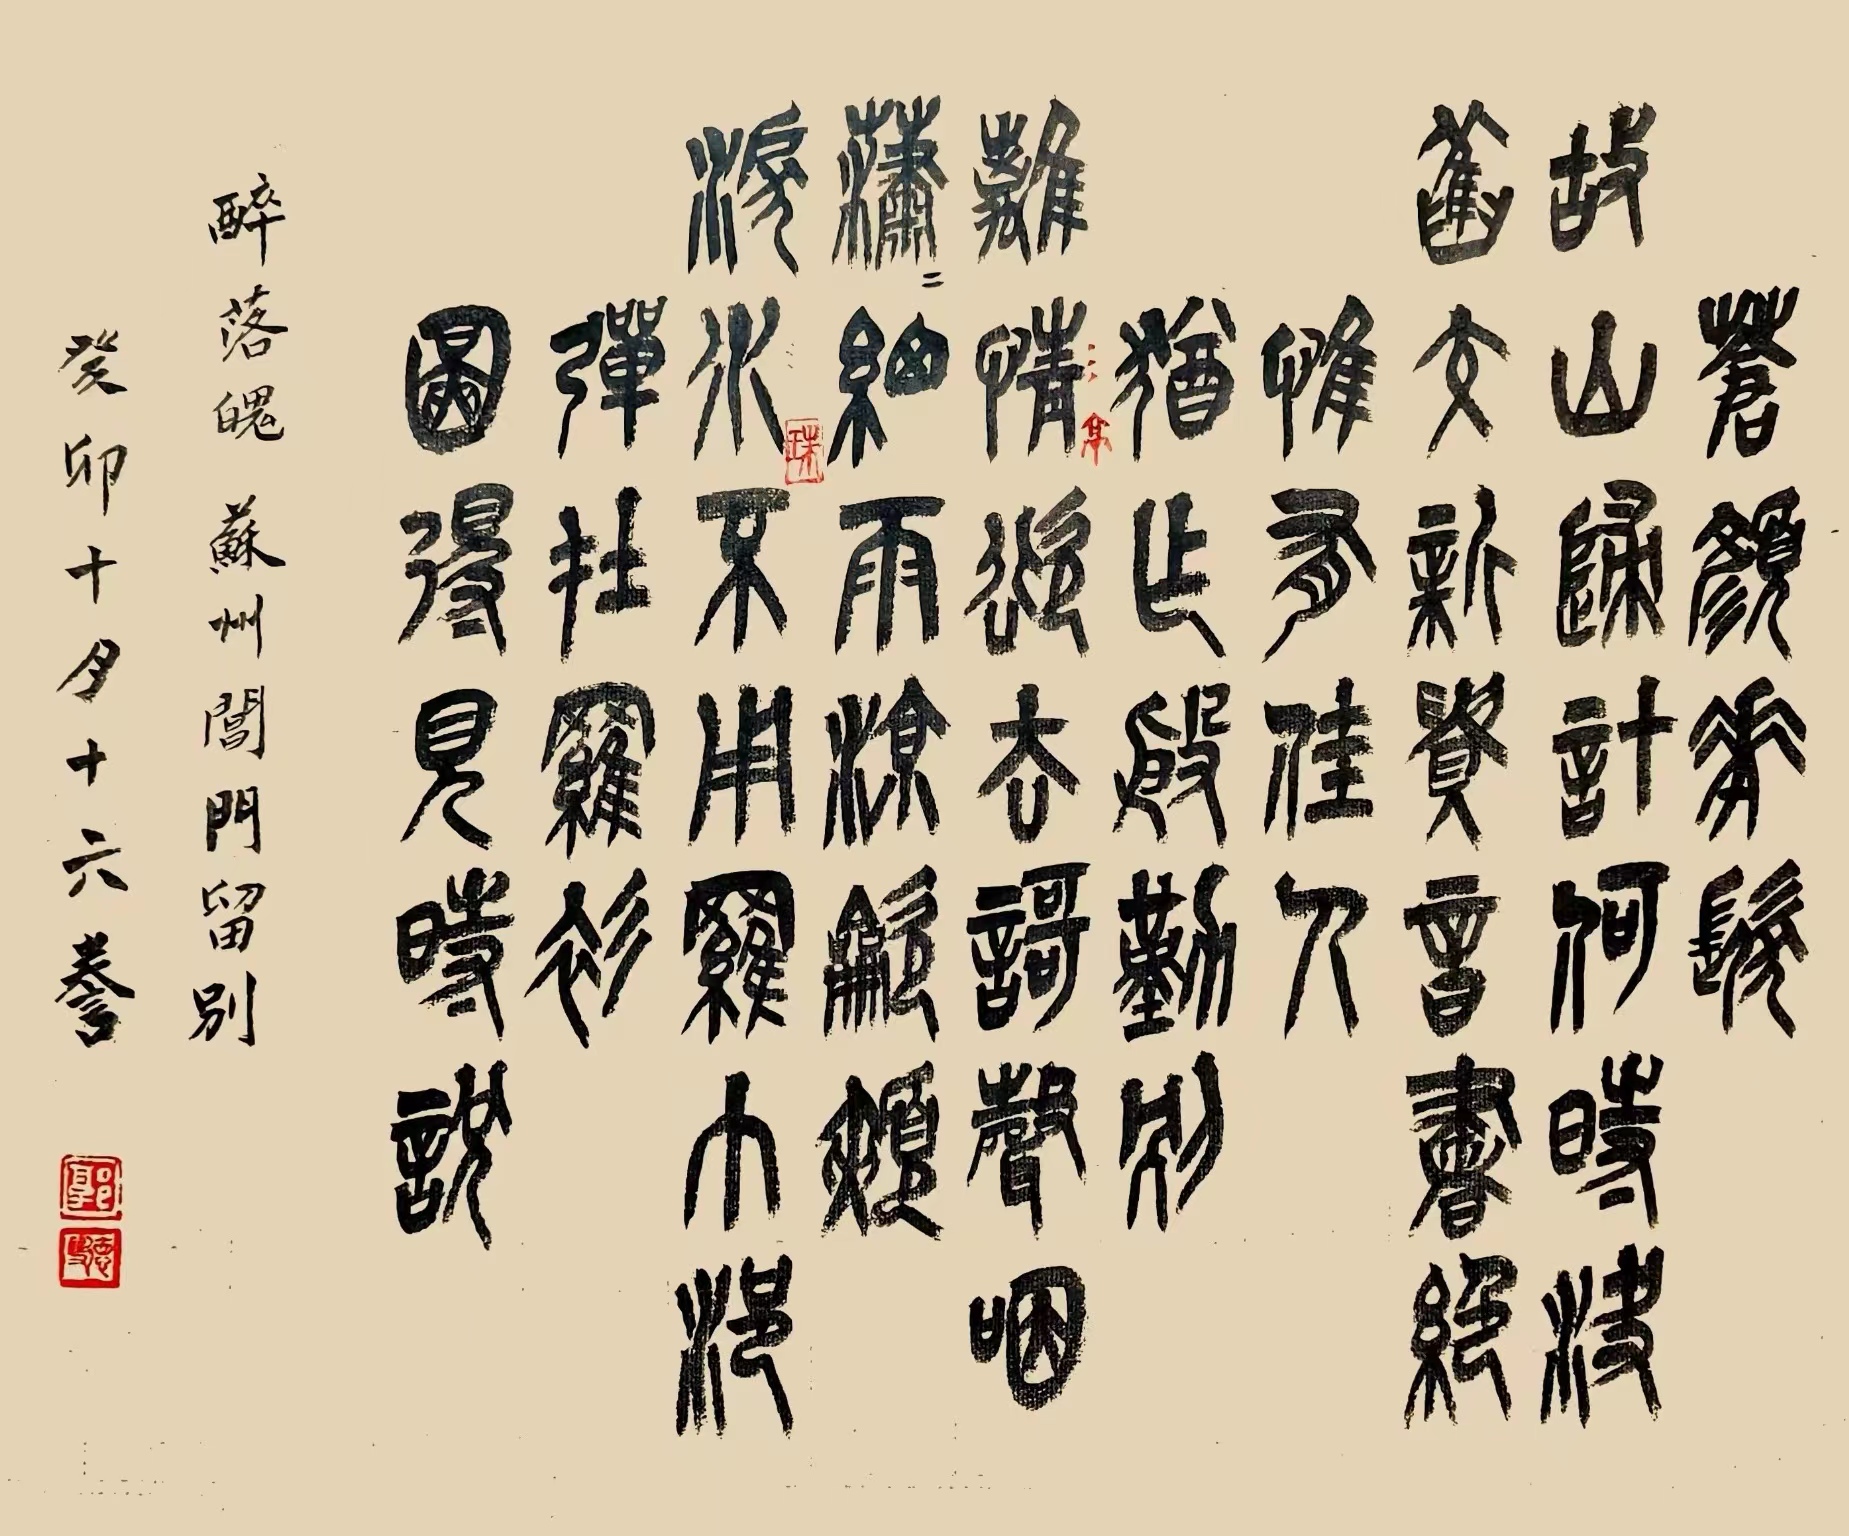 蒼顏華髮
故山歸計何時決
舊交新貴音書絕
惟有佳人
猶作殷勤別
離情欲去謌聲咽
亭
瀟二細雨涼龡頰
淚水不用羅巾浥
珠
彈在羅衫
圖得見時說
醉落魄 蘇州閶門留別
癸卯十月十六誊
郭